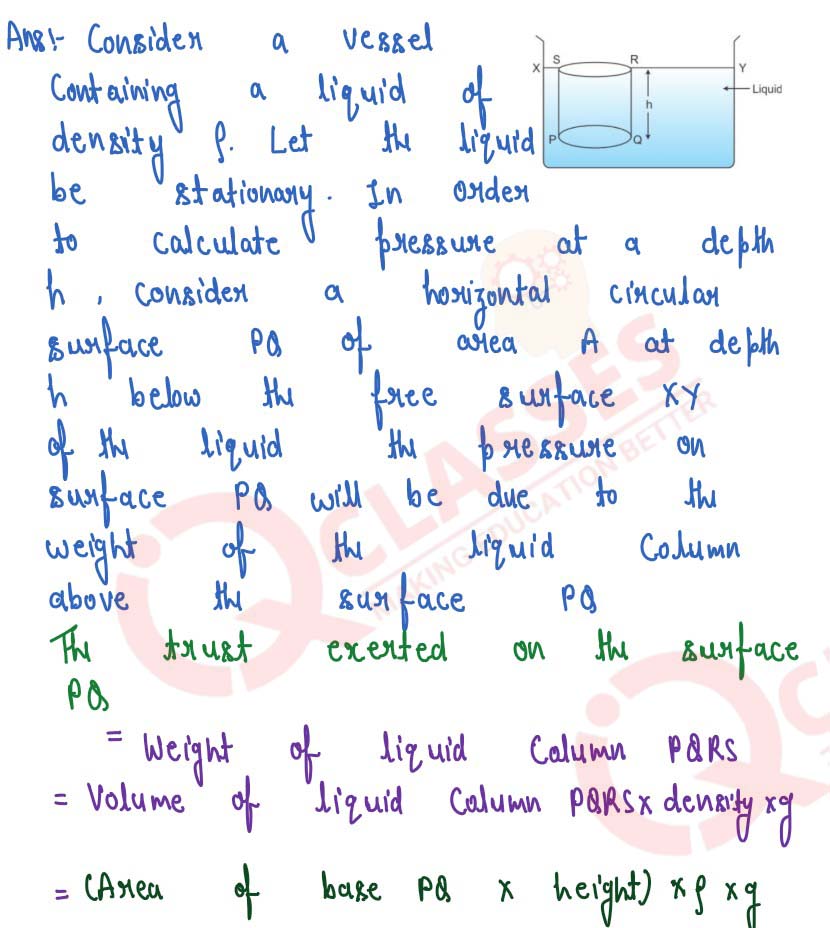 Ans:- Consider a vessel
Containing a liquid of
density ρ. Let the liquid
be stationary. In order
to calculate pressure at a depth
h, consider a horizontal circular
surface PQ of area A at depth
h below the free surface XY
of the liquid the pressure on
surface PQ will be due to the
weight of the liquid Column
above the surface PQ
The trust exerted on the surface
PQ
= Weight of liquid Column PQRS
= Volume of liquid Column PQRS x density x g
= (Area of base PQ x height) x ρ x g
X S R Y
Liquid
h
P Q
IQ CLASSES
MAKING EDUCATION BETTER